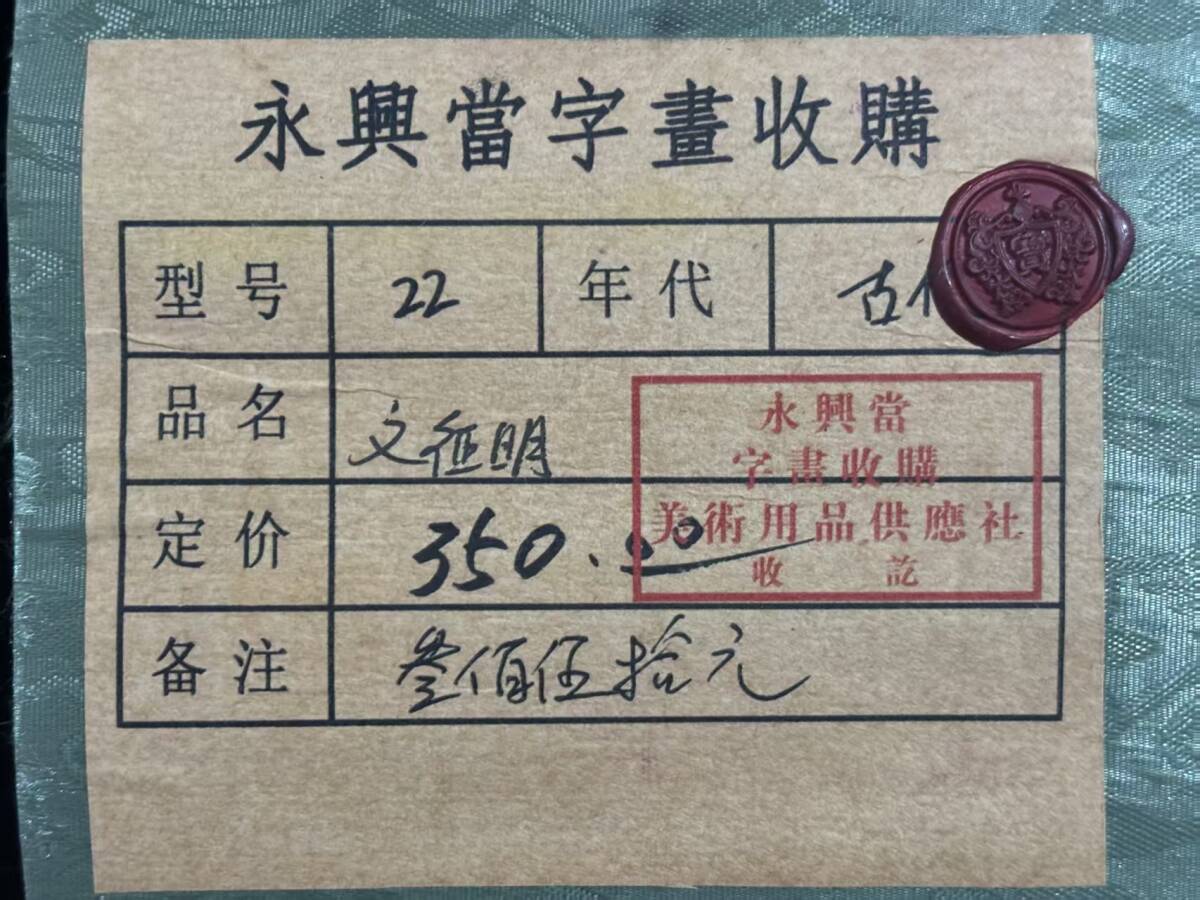 永興當字畫收購
型号 22 年代 古
品名 文征明
定价 350.00
备注 叁佰伍拾元
永興當
字畫收購
美術用品供應社
收訖